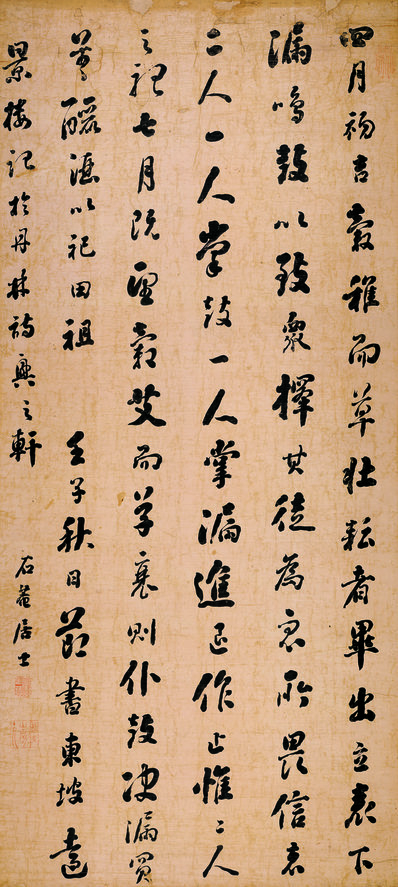 四月初吉穀稚而草壯耘者畢出立表下
漏鳴鼓以致眾擇其徒為眾所畏信者
二人一人掌鼓一人掌漏進退作止惟二人
之視七月既望穀艾而草衰則仆鼓決漏買
羊釃酒以祀田祖 壬子秋日節書東坡遠
景樓記於丹林詩興之軒 石菴居士